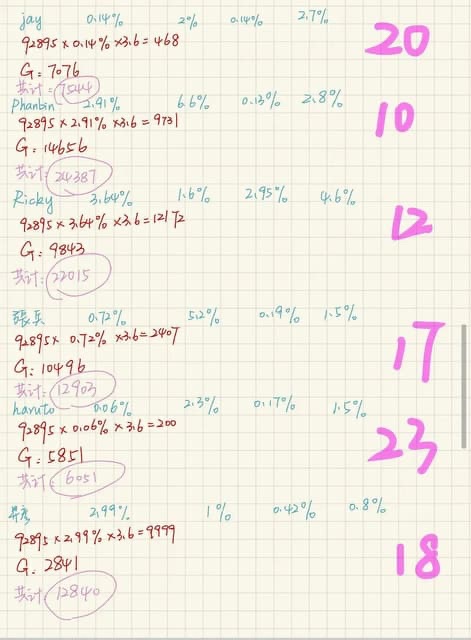 jay 0.14% 2% 0.14% 2.7%
20
92895 × 0.14% × 3.6 = 468
G: 7076
共计: 7544
Phanbin 2.91% 6.6% 0.13% 2.8%
10
92895 × 2.91% × 3.6 = 9731
G: 14656
共计: 24387
Ricky 3.64% 1.6% 2.95% 4.6%
12
92895 × 3.64% × 3.6 = 12172
G: 9843
共计: 22015
張 0.72% 5.2% 0.19% 1.5%
17
92895 × 0.72% × 3.6 = 2407
G: 10496
共计: 12903
haruto 0.06% 2.3% 0.17% 1.5%
23
92895 × 0.06% × 3.6 = 200
G: 5851
共计: 6051
2.99% 1% 0.42% 0.8%
18
92895 × 2.99% × 3.6 = 9999
G: 2841
共计: 12840